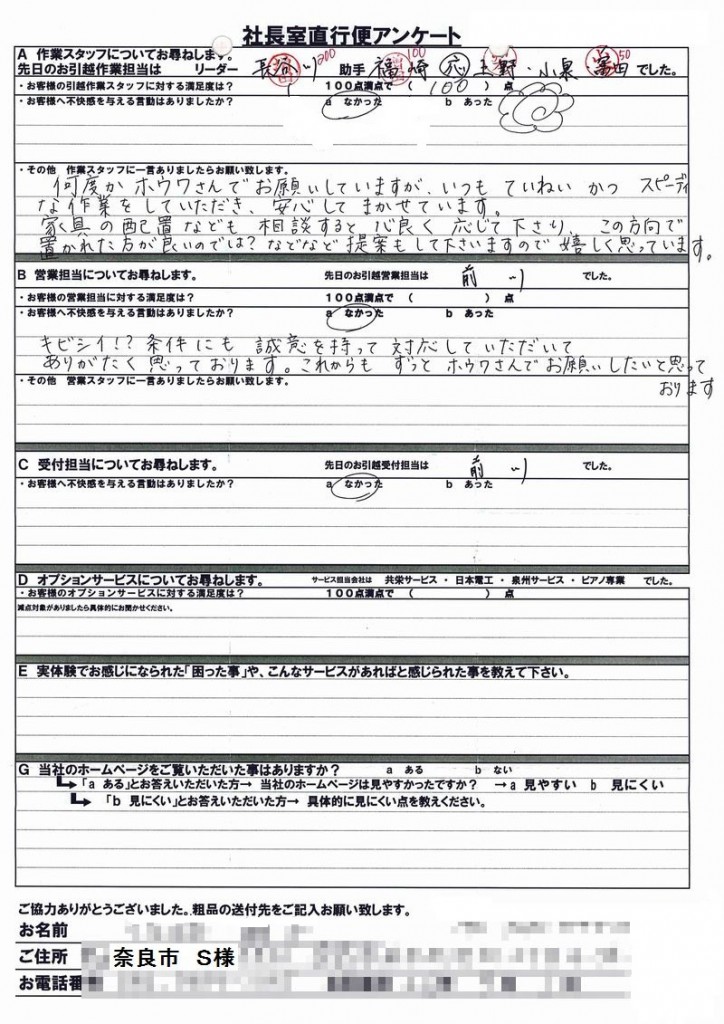 社長室直行便アンケート
A 作業スタッフについてお尋ねします。
先日のお引越作業担当は リーダー 長谷川 200 助手 福崎 100 応 上野・小泉 富田 50 でした。
・お客様の引越作業スタッフに対する満足度は? 100点満点で ( 100 ) 点
・お客様へ不快感を与える言動はありましたか? a なかった b あった
・その他 作業スタッフに一言ありましたらお願い致します。
何度か ホウワさんで お願いしていますが、いつも ていねい かつ スピーディ
な作業をしていただき、安心して まかせています。
家具の配置なども 相談すると 心良く 応じて下さり、この方向で
置かれた方が良いのでは?などなど 提案もして下さいますので 嬉しく思っています。
B 営業担当についてお尋ねします。 先日のお引越営業担当は 前川 でした。
・お客様の営業担当に対する満足度は? 100点満点で ( ) 点
・お客様へ不快感を与える言動はありましたか? a なかった b あった
キビシイ!?条件にも 誠意を持って 対応していただいて
ありがたく思っております。これからも ずっと ホウワさんでお願いしたいと思って
おります
・その他 営業スタッフに一言ありましたらお願い致します。
C 受付担当についてお尋ねします。 先日のお引越受付担当は 前川 でした。
・お客様へ不快感を与える言動はありましたか? a なかった b あった
D オプションサービスについてお尋ねします。 サービス担当会社は 共栄サービス ・ 日本電工 ・ 泉州サービス ・ ピアノ専業 でした。
・お客様のオプションサービスに対する満足度は? 100点満点で ( ) 点
減点対象がありましたら具体的にお聞かせください。
E 実体験でお感じになられた「困った事」や、こんなサービスがあればと感じられた事を教えて下さい。
G 当社のホームページをご覧いただいた事はありますか? a ある b ない
「a ある」とお答えいただいた方→ 当社のホームページは見やすかったですか? →a 見やすい b 見にくい
「b 見にくい」とお答えいただいた方→ 具体的に見にくい点を教えください。
ご協力ありがとうございました。粗品の送付先をご記入お願い致します。
お名前
ご住所 奈良市 S様
お電話番